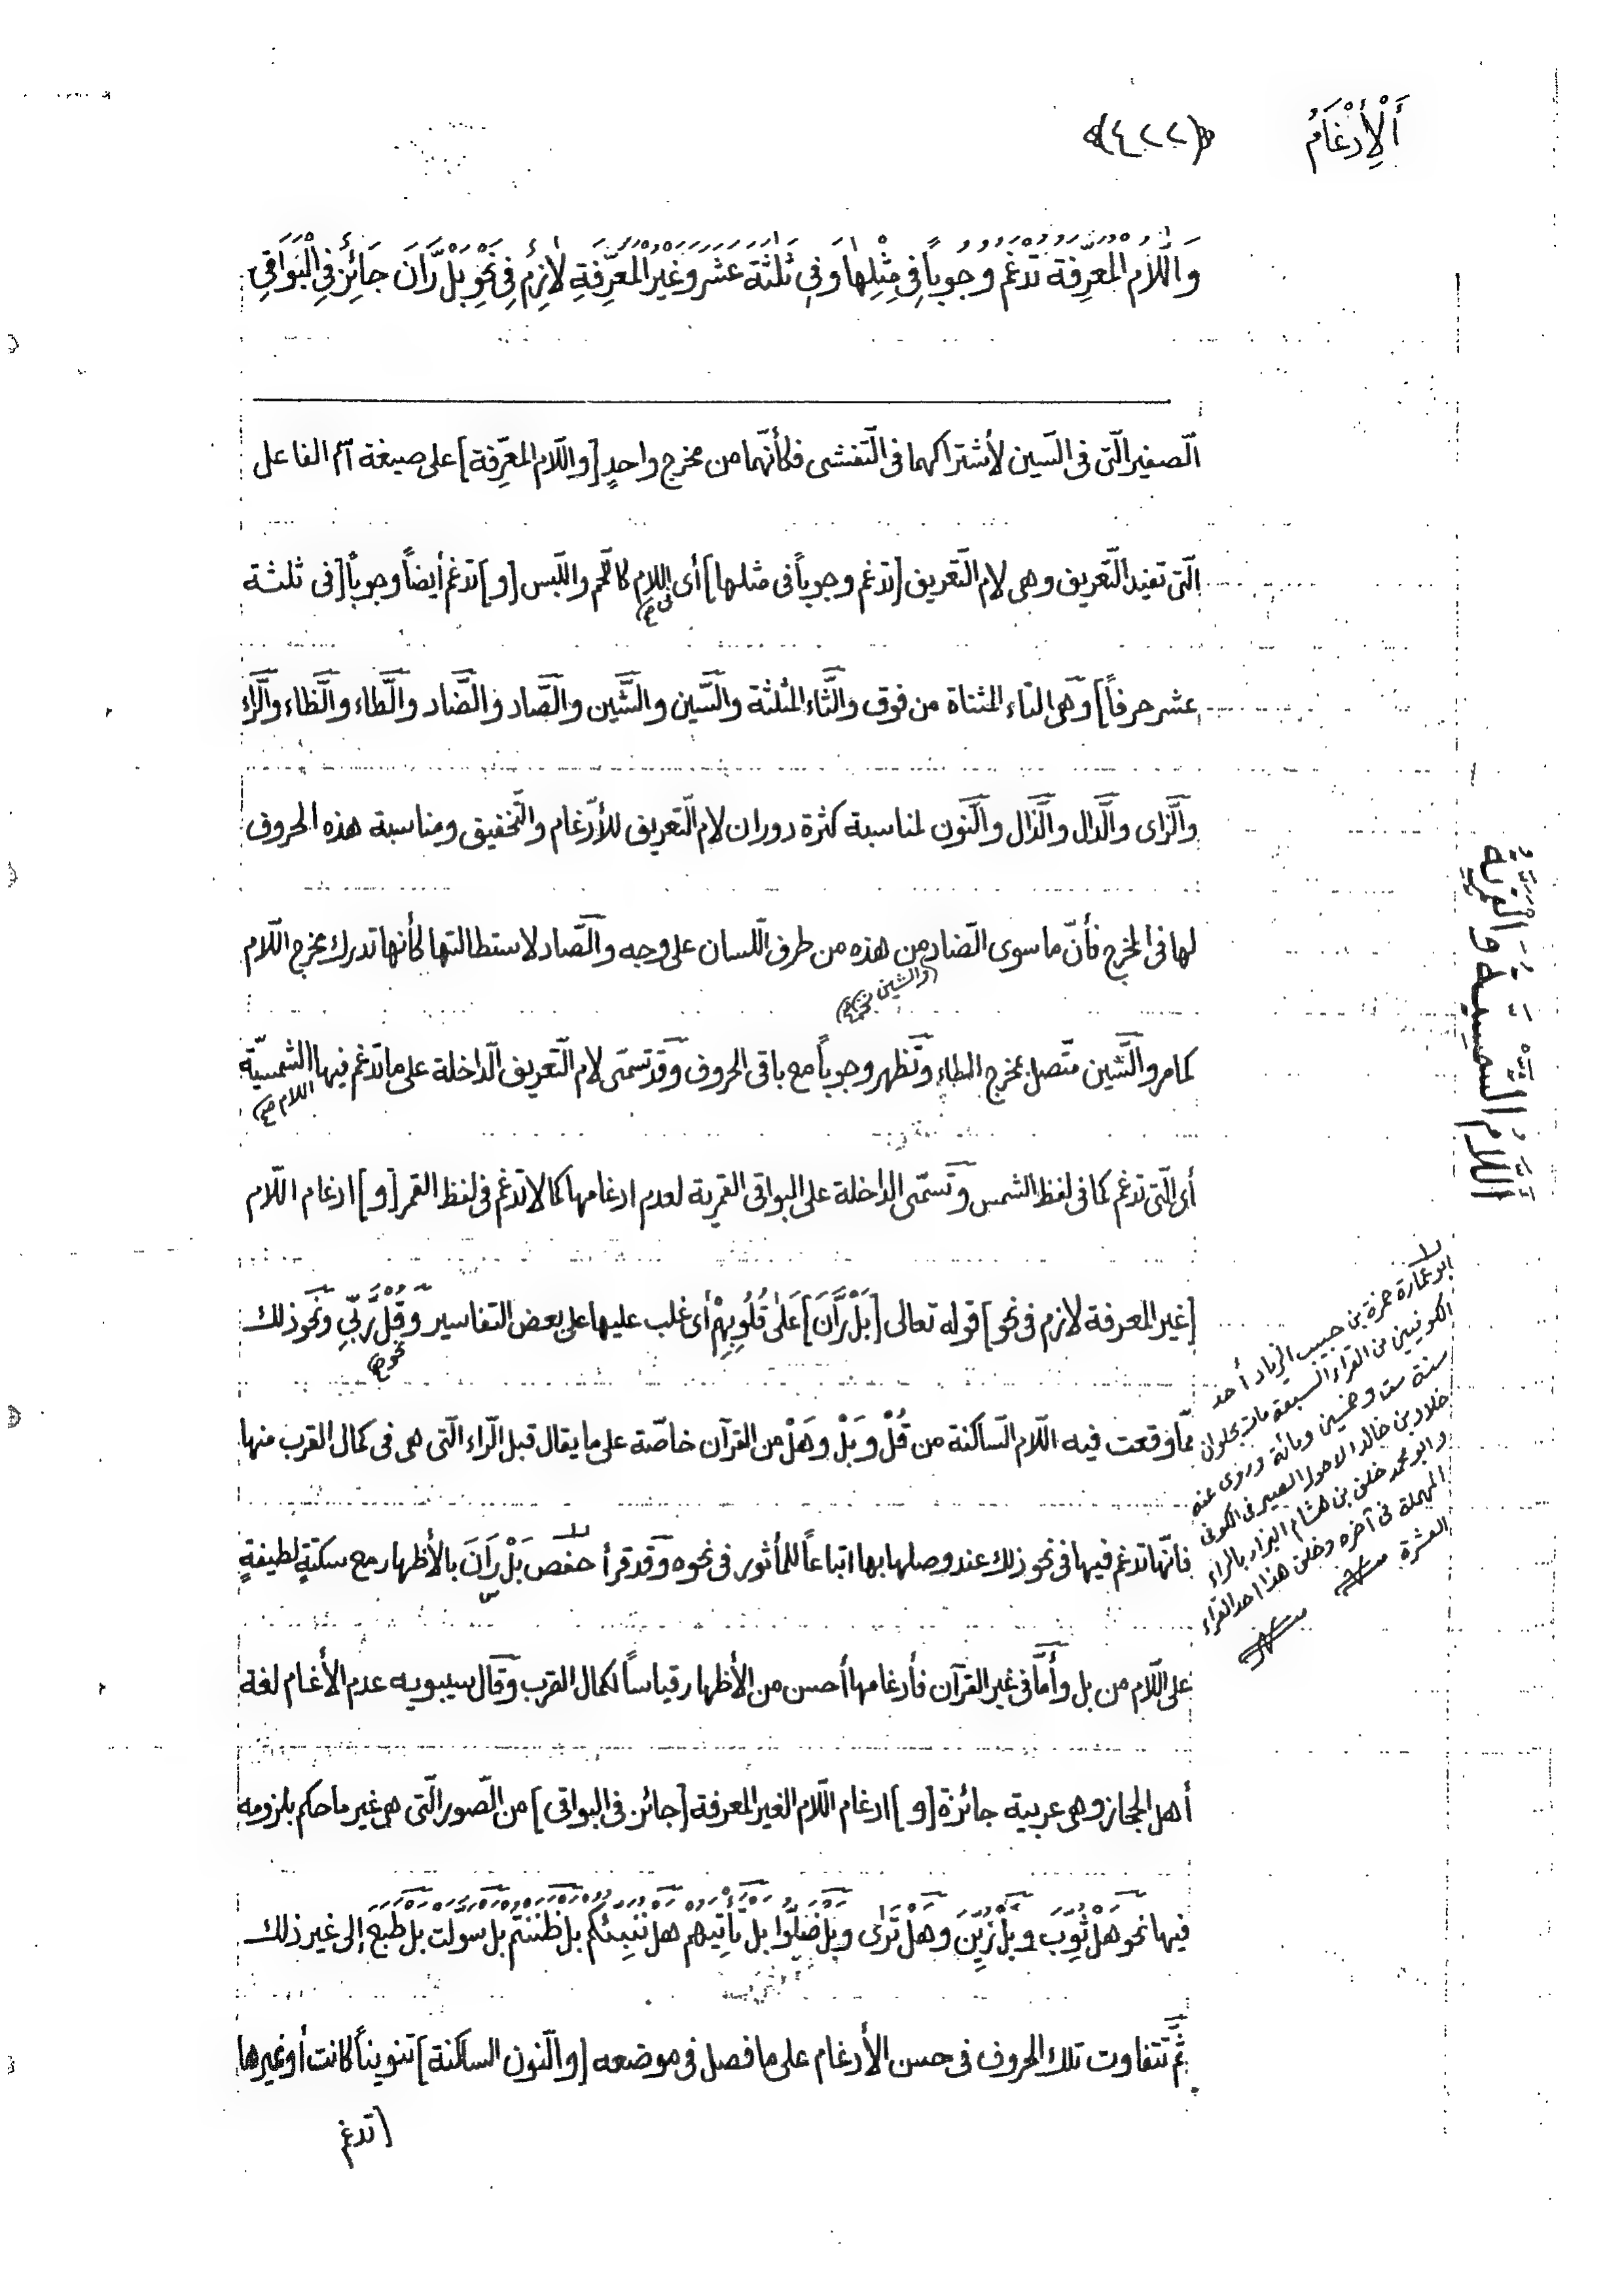 اَلْإِدْغَامُ
﴿٤٢٢﴾
وَاللَّامُ الْمُعَرِّفَةُ تُدْغَمُ وُجُوباً فِى مِثْلِهَا وَفِى ثَلٰثَةَ عَشَرَ وَغَيْرُ الْمُعَرِّفَةِ لَازِمٌ فِى نَحْوِ بَلْ رَّانَ جَائِزٌ فِى الْبَوَاقِى
الصّفير الّتى فى السّين لأشتراكهما فى التّفشى فكأنّهما من مخرج واحدٍ [واللّام المعرّفة] على صيغة اسم الفاعل
الّتى تفيد التّعريف وهى لام التّعريف [تدغم وجوباً فى مثلها] أى اللام كاللّحم واللّبس [و] تدغم أيضاً وجوباً [فى ثلثة
فى م
عشر حرفاً] وهى التاء المثناة من فوق والثّاء المثلثة والسّين والشّين والصّاد والضّاد والطّاء والظّاء والرّاء
والزّاى والدّال والذّال والنّون لمناسبة كثرة دوران لام التّعريف للأدغام والتّخفيف ومناسبة هذه الحروف
لها فى المخرج فأنّ ما سوى الضّاد من هذه من طرف اللّسان على وجه والضّاد لاستطالتها كأنها تدرك مخرج اللّام
(والشين
كما مر والشّين متّصل بمخرج الطاء وتظهر وجوباً مع باقى الحروف وقد تسمّى لام التّعريف الدّاخلة على ما تدغم فيها الشمسيّة
اللام
أى الّتى تدغم كما فى لفظ الشمس وتسمّى الداخلة على البواقى القمرية لعدم ادغامها كما لا تدغم فى لفظ القمر [و] ادغام اللّام
[غير المعرفة لازم فى نحو] قوله تعالى [بَلْ رَّانَ] عَلٰى قُلُوبِهِمْ أى غلب عليها على بعض التفاسير وَقُلْ رَّبِّى ونحو ذلك
نحو
ممّا وقعت فيه اللّام السّاكنة من قُلْ وبَلْ وهَلْ من القرآن خاصّة على ما يقال قبل الرّاء الّتى هى فى كمال القرب منها
فأنّها تدغم فيها فى نحو ذلك عند وصلها بها اتباعاً للمأثور فى نحوه وقد قرأ حفص بَلْ رَانَ بالأظهار مع سكتةٍ لطيفةٍ
س
على اللّام من بل وأمّا فى غير القرآن فأدغامها أحسن من الأظهار قياساً لكمال القرب وقال سيبويه عدم الأدغام لغة
أهل الحجاز وهى عربية جائزة [و] ادغام اللّام الغير المعرفة [جائز فى البواقى] من الصّور الّتى هى غير ما حكم بلزومه
فيها نحو هَلْ ثُوِّبَ وبَلْ زُيِّنَ وهَلْ تَرٰى وبَلْ ضَلُّوا بل تَأْتِيهِمْ هَلْ نُنَبِّئُكُمْ بل ظَنَنْتُمْ بل سَوَّلَتْ بل طَبَعَ إلى غير ذلك
ثمّ تتفاوت تلك الحروف فى حسن الأدغام على ما فصل فى موضعه [والنّون الساكنة] تنويناً كانت أو غيرها
[تدغم
اَللَّامُ الشَّمْسِيَّةُ وَالْقَمَرِيَّةُ
ابو عمارة حمزة بن حبيب الزيات أحد
الكوفيين من القراء السبعة مات بحلوان
سنة ست وخمسين ومائة وروى عنه
خلاد بن خالد الاحول الصيرفى الكوفى
وابو محمد خلف بن هشام البزار بالراء
المهملة فى آخره وخلف هذا احد القراء
العشرة